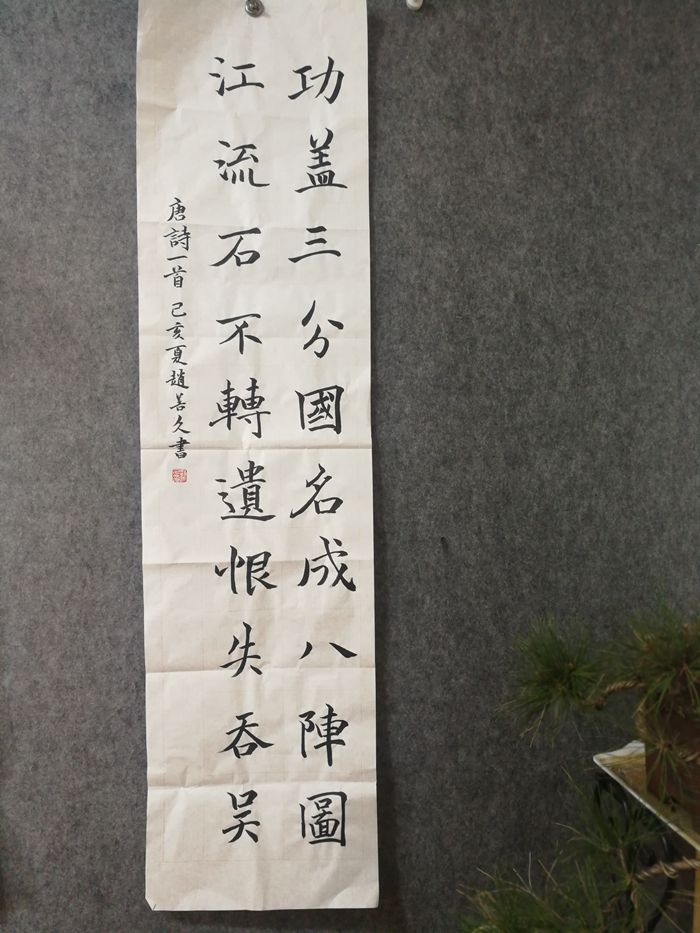 功盖三分國名成八陣圖
江流石不轉遺恨失吞吴
唐詩一首己亥夏趙善久書